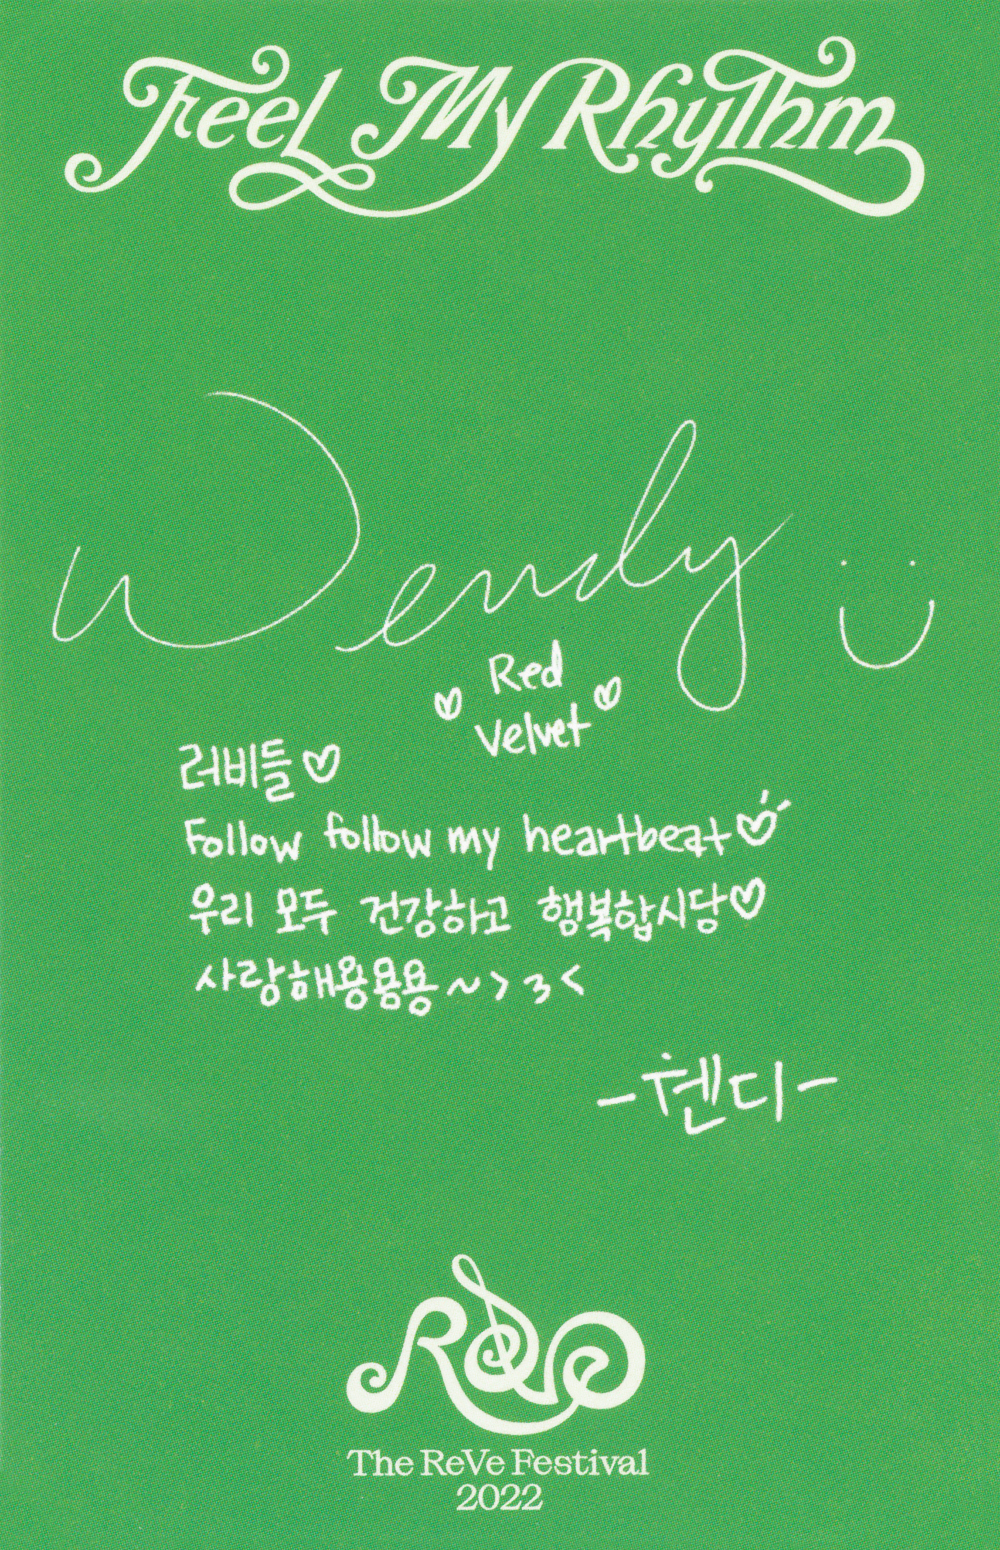 Feel My Rhythm
Wendy
Red
Velvet
러비들♡
Follow follow my heartbeat♡
우리 모두 건강하고 행복합시당♡
사랑해용용용~>3<
-웬디-
ReVe
The ReVe Festival
2022